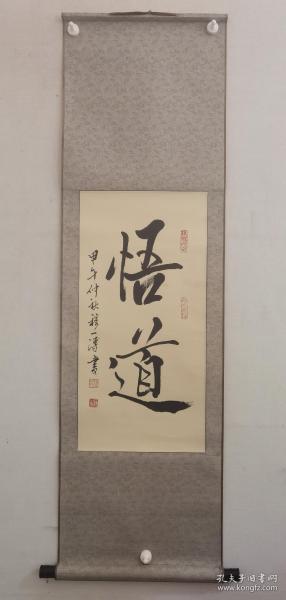 悟道
甲午仲秋穆一涛書
孔夫子旧书网
kongfz.com